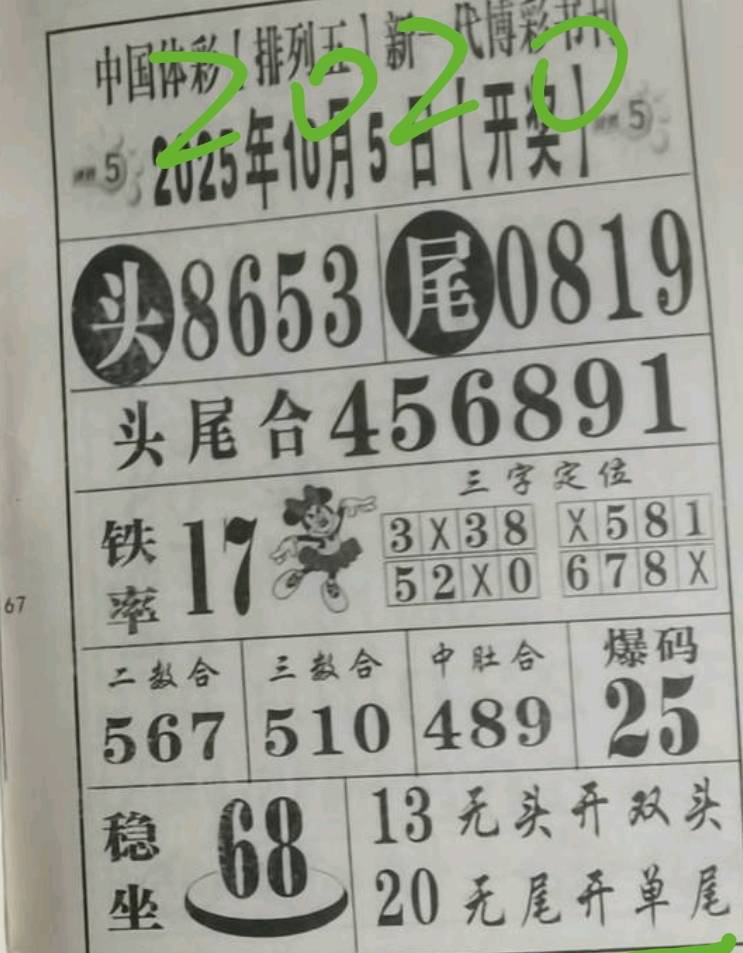 中国体彩【排列五】新一代博彩书刊
2020
2025年10月5日【开奖】
5
5
头 8653 尾 0819
头尾合 456891
铁率 17
三字定位
3X38 X581
52X0 678X
67
二数合 三数合 中肚合 爆码
567 510 489 25
稳坐 68
13 无头开双头
20 无尾开单尾